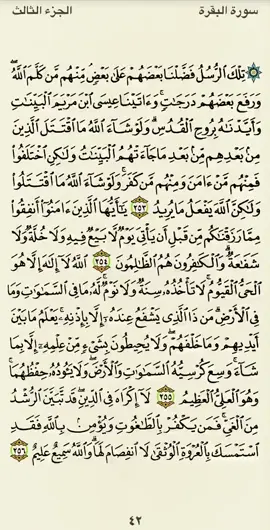 سورة البقرة
الجزء الثالث
۞ تِلْكَ ٱلرُّسُلُ فَضَّلْنَا بَعْضَهُمْ عَلَىٰ بَعْضٍۘ مِّنْهُم مَّن كَلَّمَ ٱللَّهُۖ
وَرَفَعَ بَعْضَهُمْ دَرَجَٰتٍۚ وَءَاتَيْنَا عِيسَى ٱبْنَ مَرْيَمَ ٱلْبَيِّنَٰتِ
وَأَيَّدْنَٰهُ بِرُوحِ ٱلْقُدُسِۗ وَلَوْ شَآءَ ٱللَّهُ مَا ٱقْتَتَلَ ٱلَّذِينَ
مِنۢ بَعْدِهِم مِّنۢ بَعْدِ مَا جَآءَتْهُمُ ٱلْبَيِّنَٰتُ وَلَٰكِنِ ٱخْتَلَفُوا۟
فَمِنْهُم مَّنْ ءَامَنَ وَمِنْهُم مَّن كَفَرَۚ وَلَوْ شَآءَ ٱللَّهُ مَا ٱقْتَتَلُوا۟
وَلَٰكِنَّ ٱللَّهَ يَفْعَلُ مَا يُرِيدُ ٢٥٣ يَٰٓأَيُّهَا ٱلَّذِينَ ءَامَنُوٓا۟ أَنفِقُوا۟
مِمَّا رَزَقْنَٰكُم مِّن قَبْلِ أَن يَأْتِىَ يَوْمٌ لَّا بَيْعٌ فِيهِ وَلَا خُلَّةٌ وَلَا
شَفَٰعَةٌۗ وَٱلْكَٰفِرُونَ هُمُ ٱلظَّٰلِمُونَ ٢٥٤ ٱللَّهُ لَآ إِلَٰهَ إِلَّا هُوَ
ٱلْحَىُّ ٱلْقَيُّومُۚ لَا تَأْخُذُهُۥ سِنَةٌ وَلَا نَوْمٌۚ لَّهُۥ مَا فِى ٱلسَّمَٰوَٰتِ وَمَا
فِى ٱلْأَرْضِۗ مَن ذَا ٱلَّذِى يَشْفَعُ عِندَهُۥٓ إِلَّا بِإِذْنِهِۦۚ يَعْلَمُ مَا بَيْنَ
أَيْدِيهِمْ وَمَا خَلْفَهُمْۖ وَلَا يُحِيطُونَ بِشَىْءٍ مِّنْ عِلْمِهِۦٓ إِلَّا بِمَا
شَآءَۚ وَسِعَ كُرْسِيُّهُ ٱلسَّمَٰوَٰتِ وَٱلْأَرْضَۖ وَلَا يَـُٔودُهُۥ حِفْظُهُمَاۚ
وَهُوَ ٱلْعَلِىُّ ٱلْعَظِيمُ ٢٥٥ لَآ إِكْرَاهَ فِى ٱلدِّينِۖ قَد تَّبَيَّنَ ٱلرُّشْدُ
مِنَ ٱلْغَىِّۚ فَمَن يَكْفُرْ بِٱلطَّٰغُوتِ وَيُؤْمِنۢ بِٱللَّهِ فَقَدِ
ٱسْتَمْسَكَ بِٱلْعُرْوَةِ ٱلْوُثْقَىٰ لَا ٱنفِصَامَ لَهَاۗ وَٱللَّهُ سَمِيعٌ عَلِيمٌ ٢٥٦
٤٢